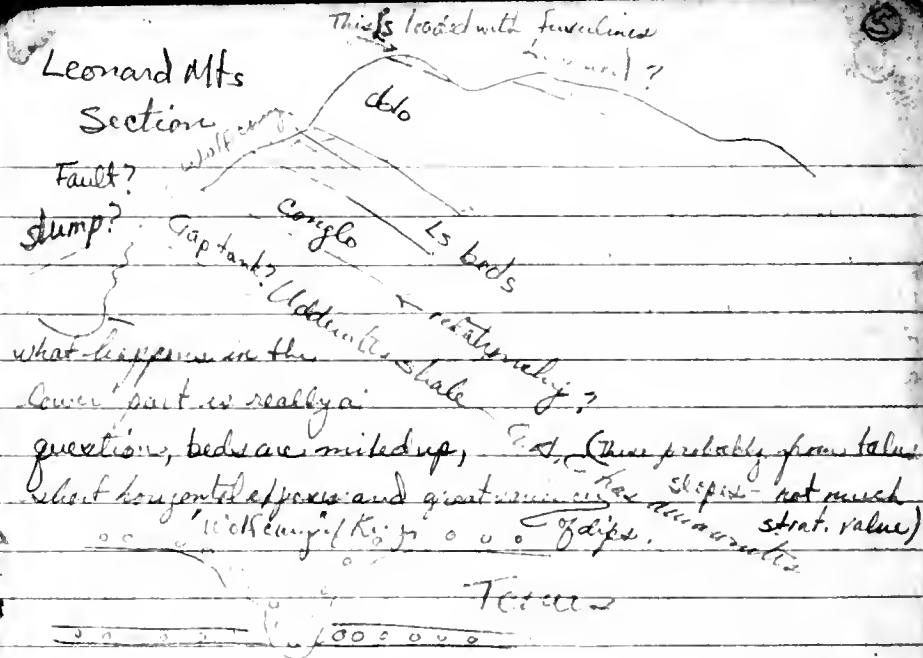 This is loaded with fusulines
5
Leonard ?
Leonard Mts
Section
dolo
Wolfcamp
Fault?
slump?
Conglo
Ls beds
Gap tank? Uddenites shale
relationship?
what happens in the
lower part is really a
question, beds are mixed up,
short horizontal exposures and great
of dips.
(These probably from talus
slopes - not much
strat. value)
has ammonites
"Wolfcamp" / King